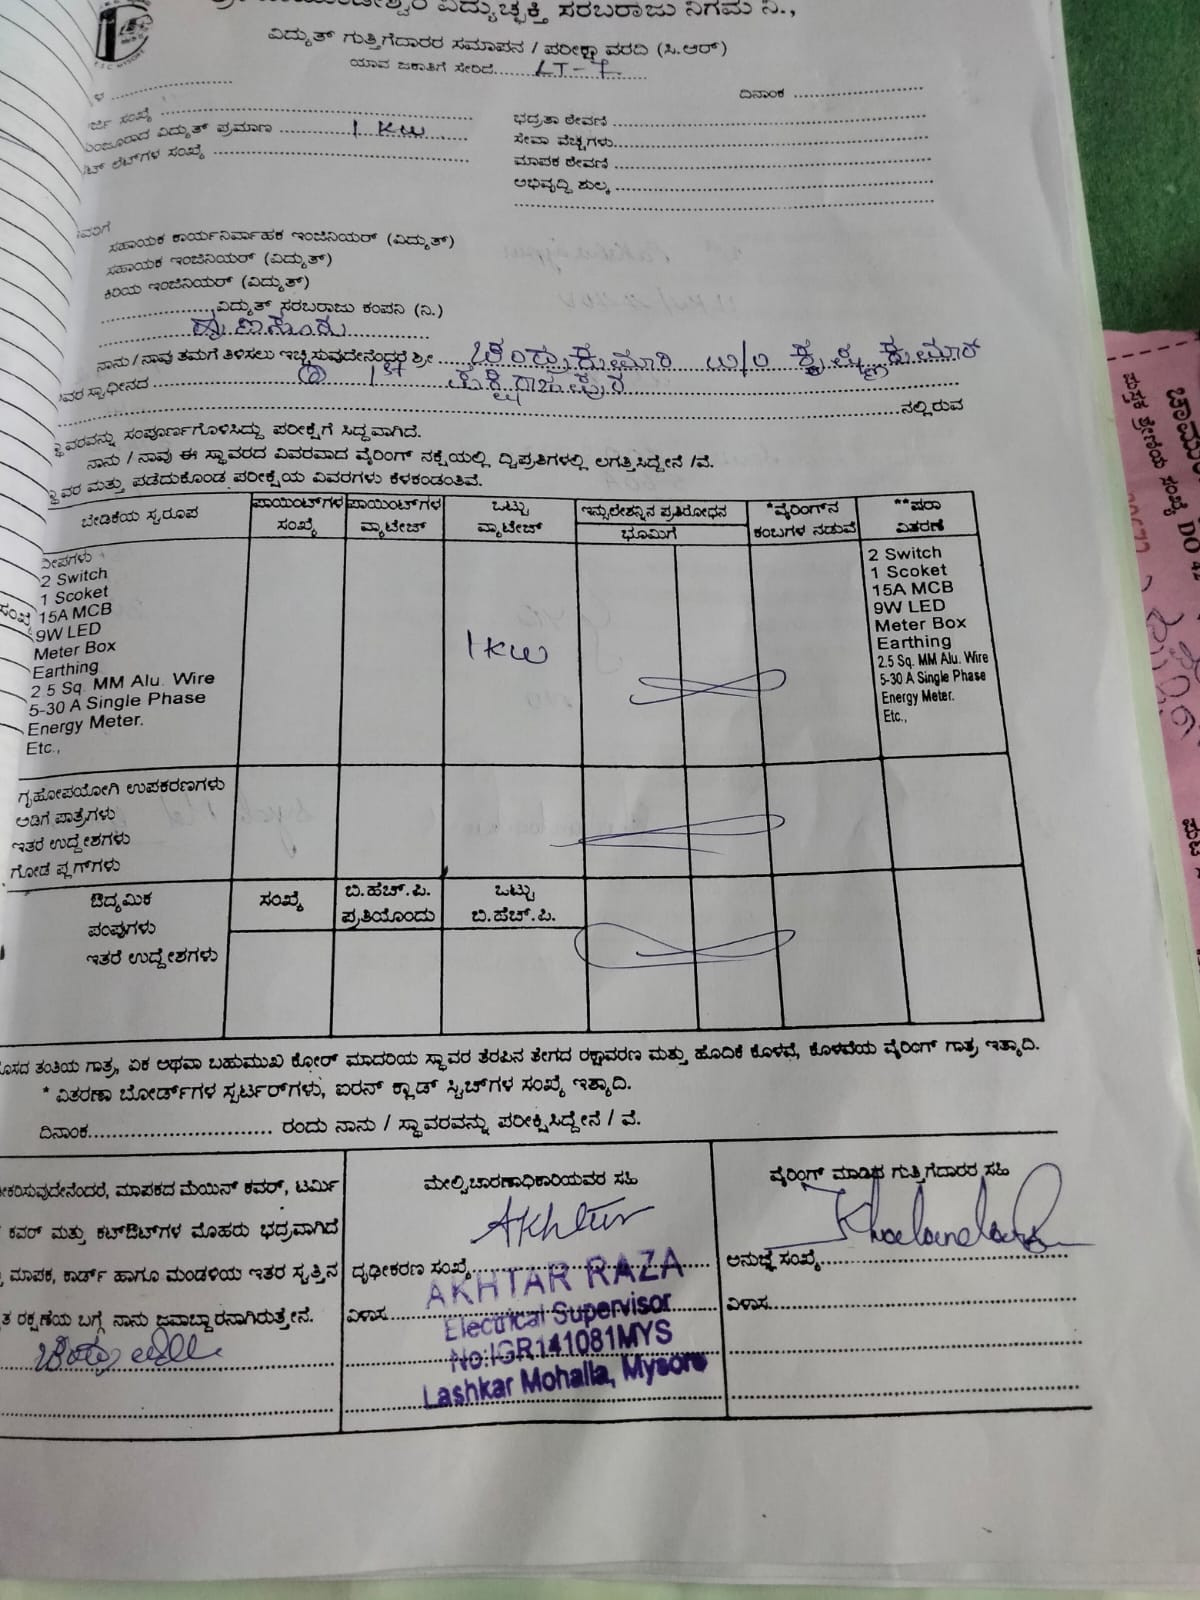 ವಿದ್ಯುಚ್ಛಕ್ತಿ ಸರಬರಾಜು ನಿಗಮ ನಿ.,
ವಿದ್ಯುತ್ ಗುತ್ತಿಗೆದಾರರ ಸಮಾಪನ / ಪರೀಕ್ಷಾ ವರದಿ (ಸಿ.ಆರ್)
ಯಾವ ಜಕಾತಿಗೆ ಸೇರಿದೆ LT-7
ದಿನಾಂಕ
ಸಂಖ್ಯೆ
ಭದ್ರತಾ ಠೇವಣಿ
ವಿದ್ಯುತ್ ಪ್ರಮಾಣ 1 KW
ಸೇವಾ ವೆಚ್ಚಗಳು
ಲೆಟ್‌ಗಳ ಸಂಖ್ಯೆ
ಮಾಪಕ ಠೇವಣಿ
ಅಭಿವೃದ್ಧಿ ಶುಲ್ಕ
ಸಹಾಯಕ ಕಾರ್ಯನಿರ್ವಾಹಕ ಇಂಜಿನಿಯರ್ (ವಿದ್ಯುತ್)
ಸಹಾಯಕ ಇಂಜಿನಿಯರ್ (ವಿದ್ಯುತ್)
ಕಿರಿಯ ಇಂಜಿನಿಯರ್ (ವಿದ್ಯುತ್)
ವಿದ್ಯುತ್ ಸರಬರಾಜು ಕಂಪನಿ (ನಿ.)
ಹುಣಸೂರು
ನಾನು / ನಾವು ತಮಗೆ ತಿಳಿಸಲು ಇಚ್ಛಿಸುವುದೇನೆಂದರೆ ಶ್ರೀ ಚಂದ್ರಕುಮಾರಿ w/o ಕೃಷ್ಣಕುಮಾರ್
ಸ್ವಾಧೀನದ ಪಕ್ಷಿರಾಜಪುರ
ನಲ್ಲಿರುವ
ಸ್ಥಾವರವನ್ನು ಸಂಪೂರ್ಣಗೊಳಿಸಿದ್ದು ಪರೀಕ್ಷೆಗೆ ಸಿದ್ದವಾಗಿದೆ.
ನಾನು / ನಾವು ಈ ಸ್ಥಾವರದ ವಿವರವಾದ ವೈರಿಂಗ್ ನಕ್ಷೆಯಲ್ಲಿ ದ್ವಿಪ್ರತಿಗಳಲ್ಲಿ ಲಗತ್ತಿಸಿದ್ದೇನೆ /ವೆ.
ಮತ್ತು ಪಡೆದುಕೊಂಡ ಪರೀಕ್ಷೆಯ ವಿವರಗಳು ಕೆಳಕಂಡಂತಿವೆ.
ಬೇಡಿಕೆಯ ಸ್ವರೂಪ
ಪಾಯಿಂಟ್‌ಗಳ ಸಂಖ್ಯೆ
ಪಾಯಿಂಟ್‌ಗಳ ವ್ಯಾಟೇಜ್
ಒಟ್ಟು ವ್ಯಾಟೇಜ್
ಇನ್ಸುಲೇಶನ್ನಿನ ಪ್ರತಿರೋಧನ
ಭೂಮಿಗೆ
*ವೈರಿಂಗ್‌ನ ಕಂಬಗಳ ನಡುವೆ
**ಷರಾ ವಿತರಣೆ
ದೀಪಗಳು
2 Switch
1 Scoket
15A MCB
9W LED
Meter Box
Earthing
2.5 Sq. MM Alu. Wire
5-30 A Single Phase
Energy Meter.
Etc.,
1 KW
2 Switch
1 Scoket
15A MCB
9W LED
Meter Box
Earthing
2.5 Sq. MM Alu. Wire
5-30 A Single Phase
Energy Meter.
Etc.,
ಗೃಹೋಪಯೋಗಿ ಉಪಕರಣಗಳು
ಅಡಿಗೆ ಪಾತ್ರೆಗಳು
ಇತರೆ ಉದ್ದೇಶಗಳು
ಗೋಡೆ ಪ್ಲಗ್‌ಗಳು
ಔದ್ಯಮಿಕ
ಪಂಪುಗಳು
ಇತರೆ ಉದ್ದೇಶಗಳು
ಸಂಖ್ಯೆ
ಬಿ.ಹೆಚ್.ಪಿ. ಪ್ರತಿಯೊಂದು
ಒಟ್ಟು ಬಿ.ಹೆಚ್.ಪಿ.
ತಂತಿಯ ಗಾತ್ರ, ಏಕ ಅಥವಾ ಬಹುಮುಖ ಕೋರ್ ಮಾದರಿಯ ಸ್ಥಾವರ ತೆರಪಿನ ತೇಗದ ರಕ್ಷಾವರಣ ಮತ್ತು ಹೊದಿಕೆ ಕೊಳವೆ, ಕೊಳವೆಯ ವೈರಿಂಗ್ ಗಾತ್ರ ಇತ್ಯಾದಿ.
* ವಿತರಣಾ ಬೋರ್ಡ್‌ಗಳ ಸ್ಪರ್ಟರ್‌ಗಳು, ಐರನ್ ಕ್ಲಾಡ್ ಸ್ವಿಚ್‌ಗಳ ಸಂಖ್ಯೆ ಇತ್ಯಾದಿ.
ದಿನಾಂಕ ರಂದು ನಾನು / ಸ್ಥಾವರವನ್ನು ಪರೀಕ್ಷಿಸಿದ್ದೇನೆ / ವೆ.
ಮಾಪಕದ ಮೆಯಿನ್ ಕವರ್, ಟರ್ಮಿ
ಕವರ್ ಮತ್ತು ಕಟ್‌ಔಟ್‌ಗಳ ಮೊಹರು ಭದ್ರವಾಗಿದೆ
ಮಾಪಕ, ಕಾರ್ಡ್ ಹಾಗೂ ಮಂಡಳಿಯ ಇತರ ಸ್ವತ್ತಿನ
ರಕ್ಷಣೆಯ ಬಗ್ಗೆ ನಾನು ಜವಾಬ್ದಾರನಾಗಿರುತ್ತೇನೆ.
ಮೇಲ್ವಿಚಾರಣಾಧಿಕಾರಿಯವರ ಸಹಿ
Akhtar
ದೃಢೀಕರಣ ಸಂಖ್ಯೆ
ವಿಳಾಸ
AKHTAR RAZA
Electrical Supervisor
No:IGR141081MYS
Lashkar Mohalla, Mysore
ವೈರಿಂಗ್ ಮಾಡಿದ ಗುತ್ತಿಗೆದಾರರ ಸಹಿ
ಅನುಜ್ಞ ಸಂಖ್ಯೆ
ವಿಳಾಸ